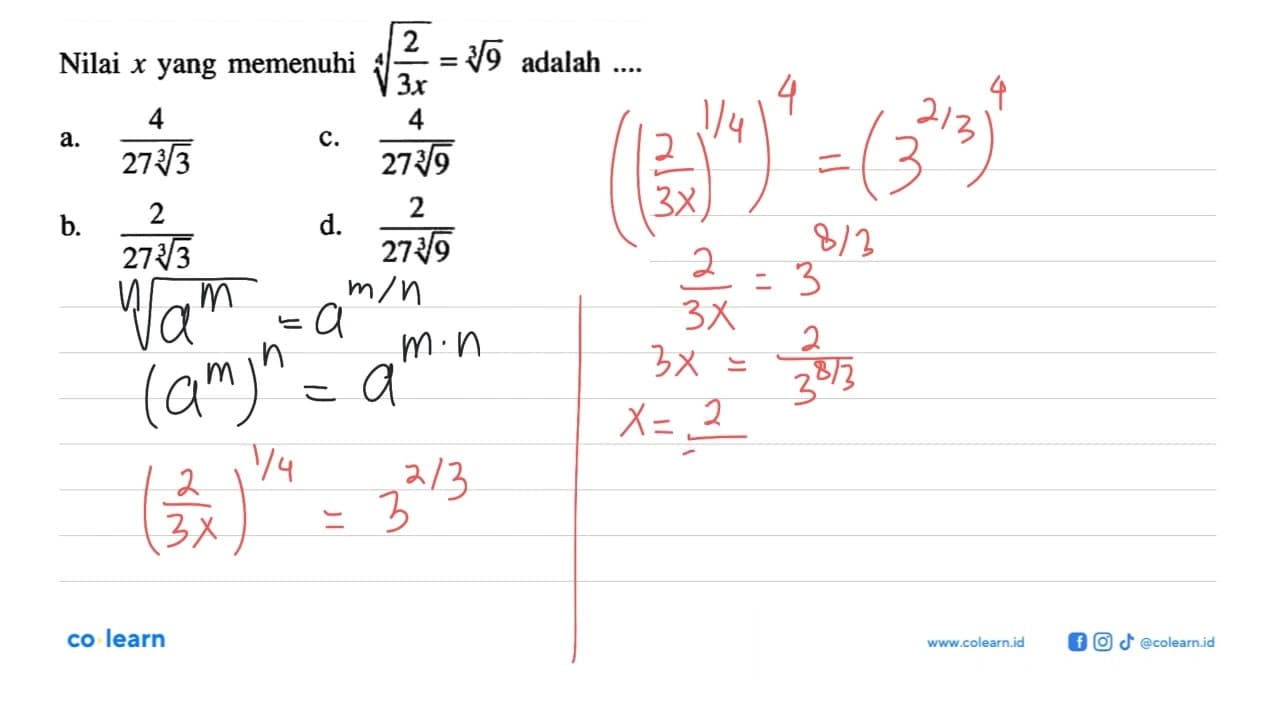 Nilai x yang memenuhi ∜(2/3x) = ∛9 adalah ....
a. 4/(27∛3) c. 4/(27∛9)
b. 2/(27∛3) d. 2/(27∛9)
ⁿ√(a^m) = a^(m/n)
(a^m)^n = a^(m·n)
(2/3x)^(1/4) = 3^(2/3)
((2/3x)^(1/4))^4 = (3^(2/3))^4
2/3x = 3^(8/3)
3x = 2/3^(8/3)
x = 2
co learn
www.colearn.id @colearn.id